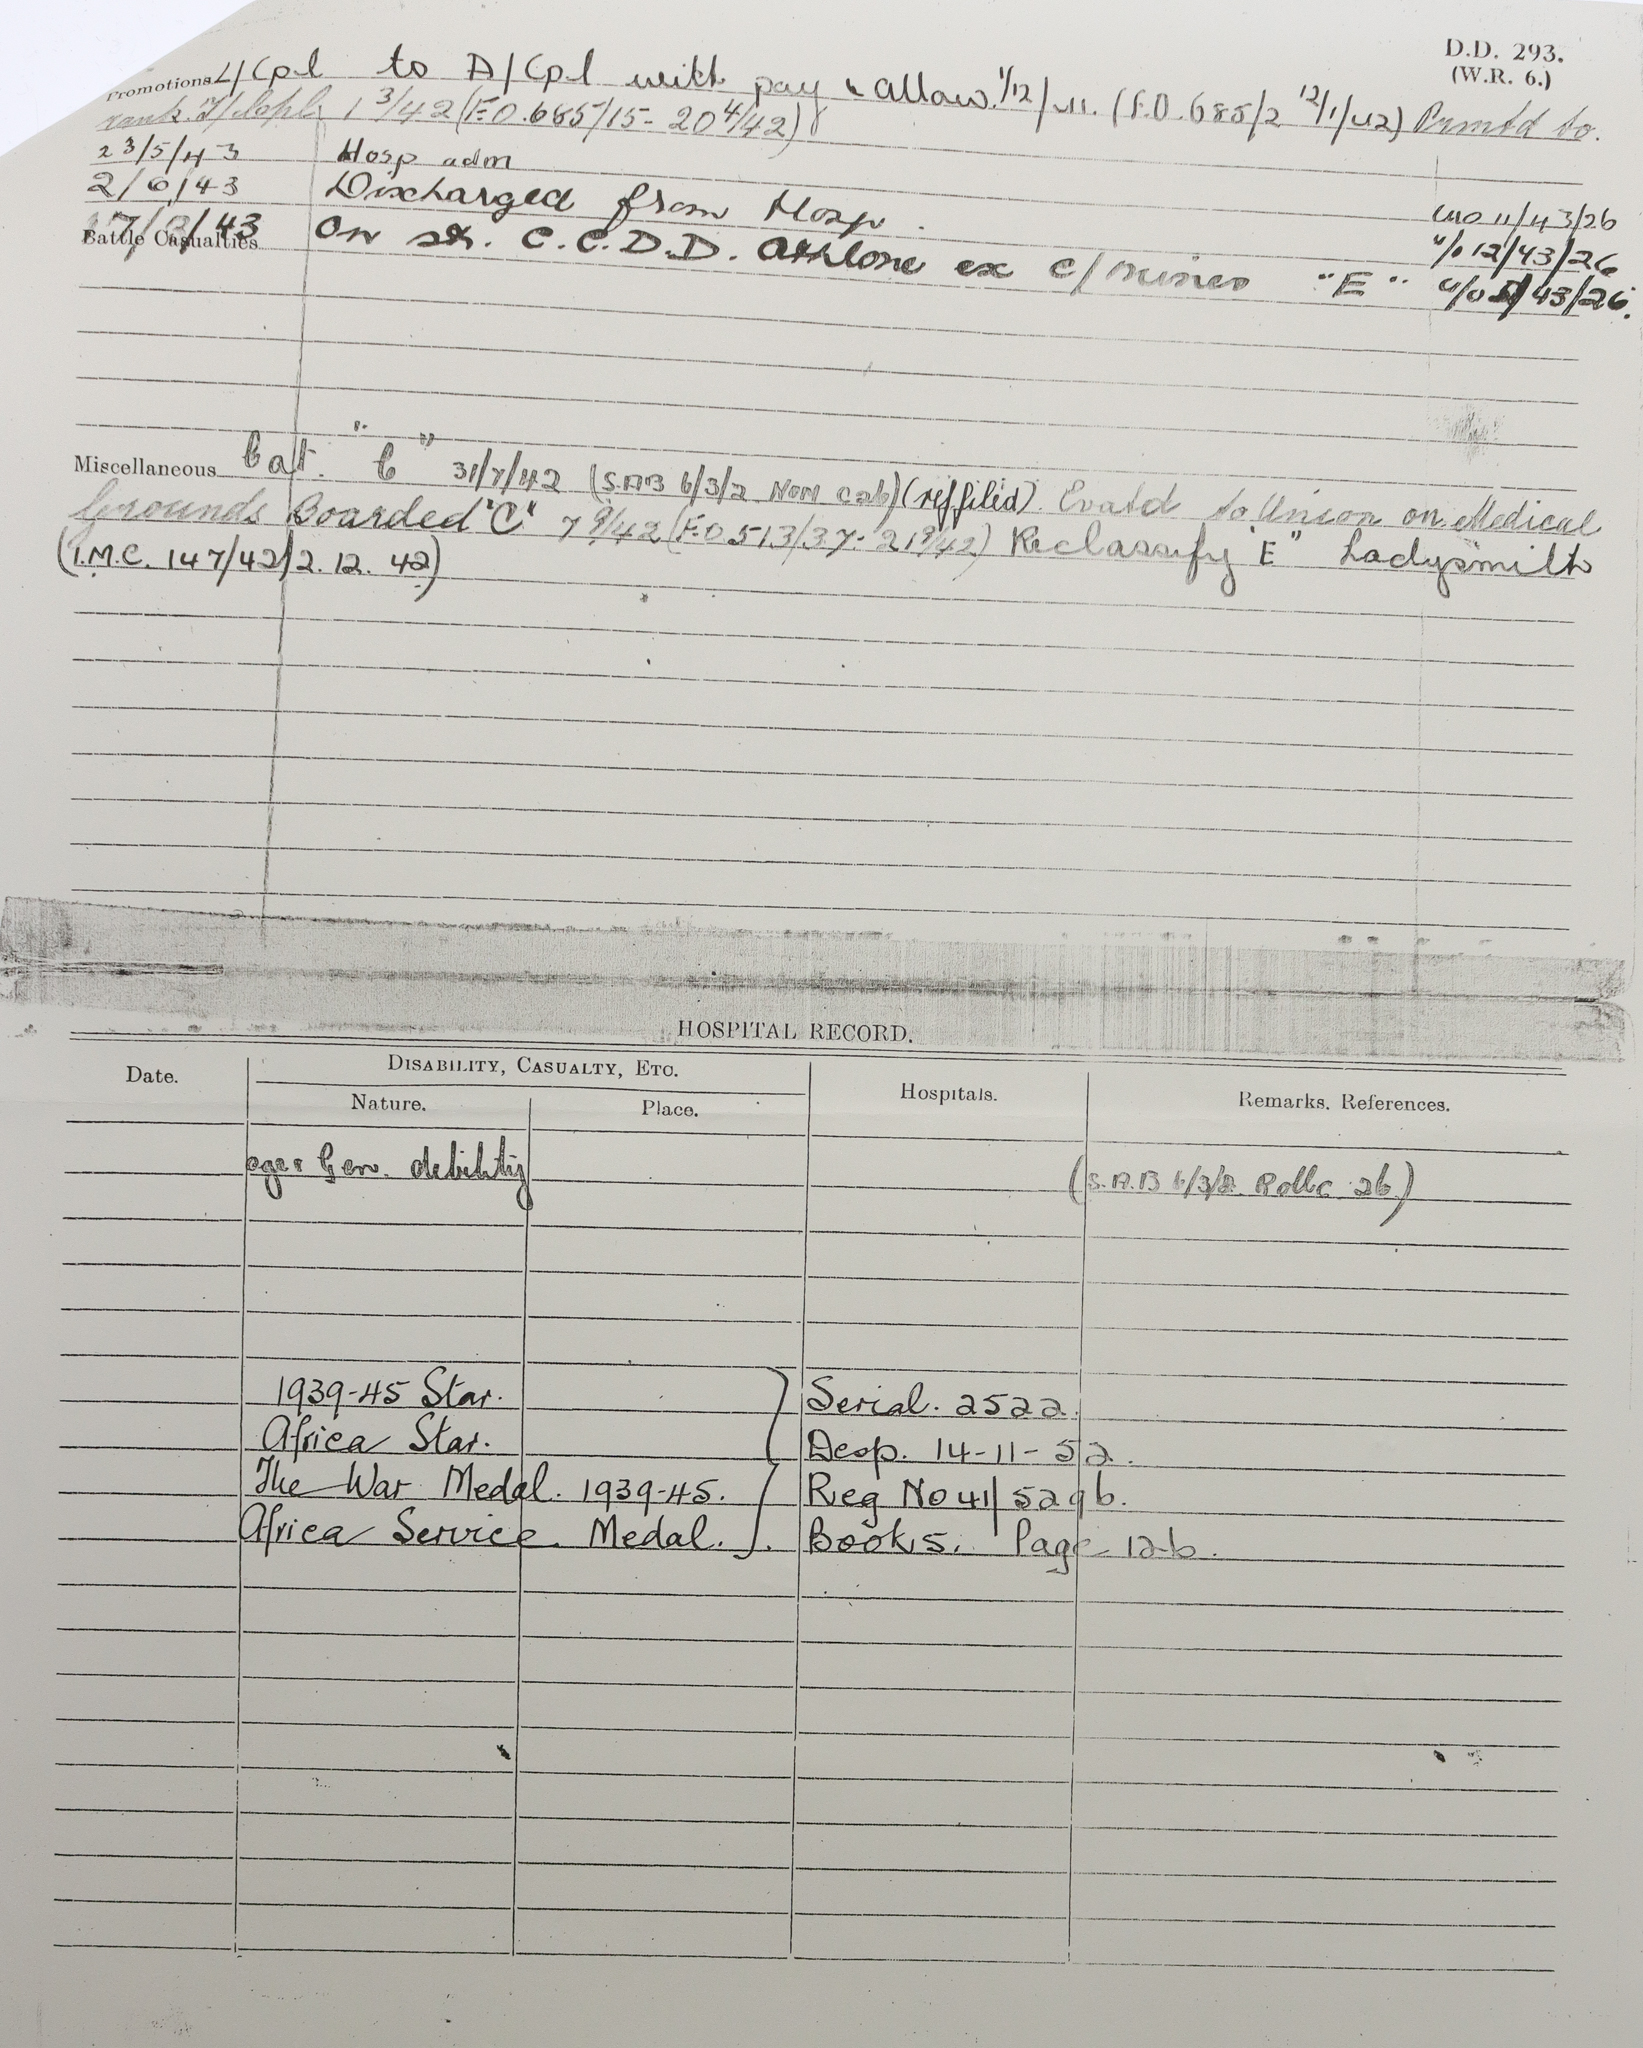 D.D. 293.
(W.R. 6.)
Promotions L/Cpl to A/Cpl with pay & allow. 1/12/41. (F.O. 685/2 12/1/42) Prmtd to
rank T/Cpl 1 3/42 (F.O. 685/15 - 20 4/42)
23/5/43 Hosp adm U/O 11/43/26
2/6/43 Discharged from Hosp. U/O 12/43/26
/43 On str. C.C.D.D. Athlone ex C/Mines "E" U/O /43/26.
Battle Casualties
Miscellaneous Cat. "C" 31/7/42 (S.A.B 6/3/2 Non (reffiled). Evatd to Union on Medical
Grounds Boarded "C" 7 9/42 (F.O 513/37 - 21 9/42) Reclassify "E" Ladysmith
(I.M.C. 147/42/2. 12. 42)
HOSPITAL RECORD.
Date. DISABILITY, CASUALTY, ETC. Hospitals. Remarks. References.
Nature. Place.
age & Gen. debility (S.A.B 6/3/2. 26.)
1939-45 Star. Serial. 2522.
Africa Star. Desp. 14-11-52.
The War Medal. 1939-45. Reg No 41/5296.
Africa Service Medal. Book 5. Page 126.